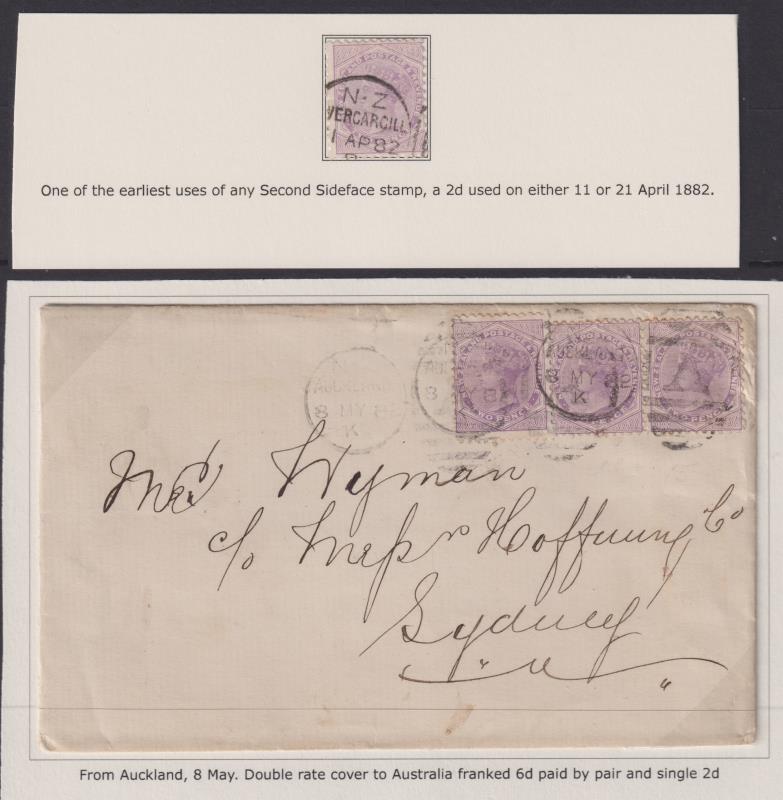 N-Z
VERCARGILL
1 AP 82
One of the earliest uses of any Second Sideface stamp, a 2d used on either 11 or 21 April 1882.
AUCKLAND
8 MY 82
K
8 MY 82
K
A
TWO PENCE
Wyman
c/o Messrs Hoffnung & Co
Sydney
From Auckland, 8 May. Double rate cover to Australia franked 6d paid by pair and single 2d